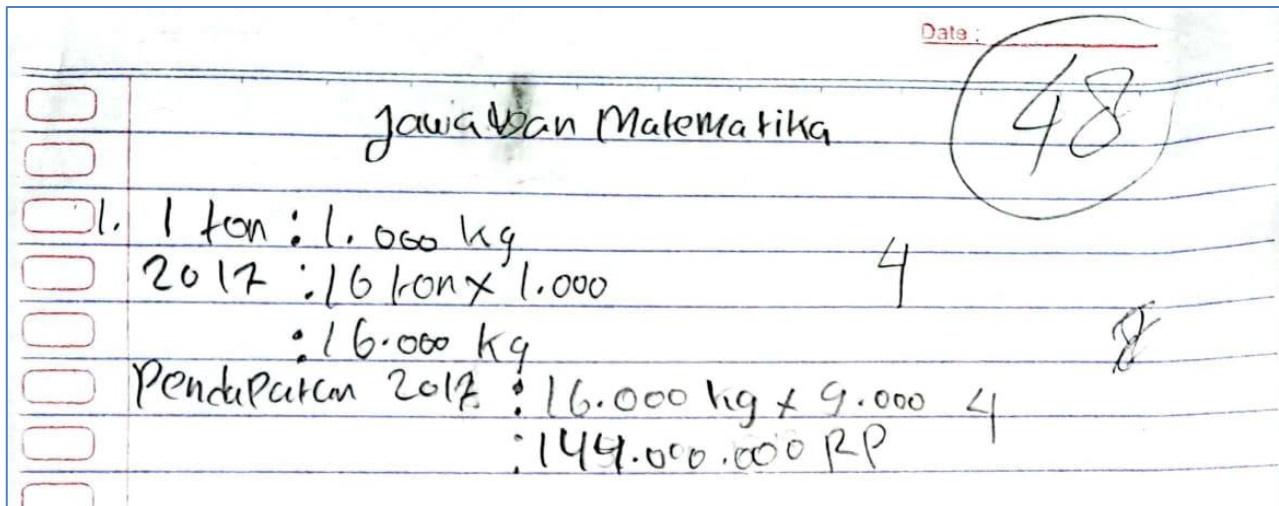 Date :
48
Jawaban Matematika
1. 1 ton : 1.000 kg
2017 : 16 ton x 1.000
4
: 16.000 kg
8
Pendapatan 2017 : 16.000 kg x 9.000
4
: 144.000.000 RP